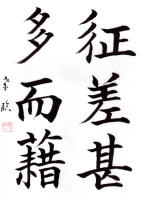 征差甚
多而藉